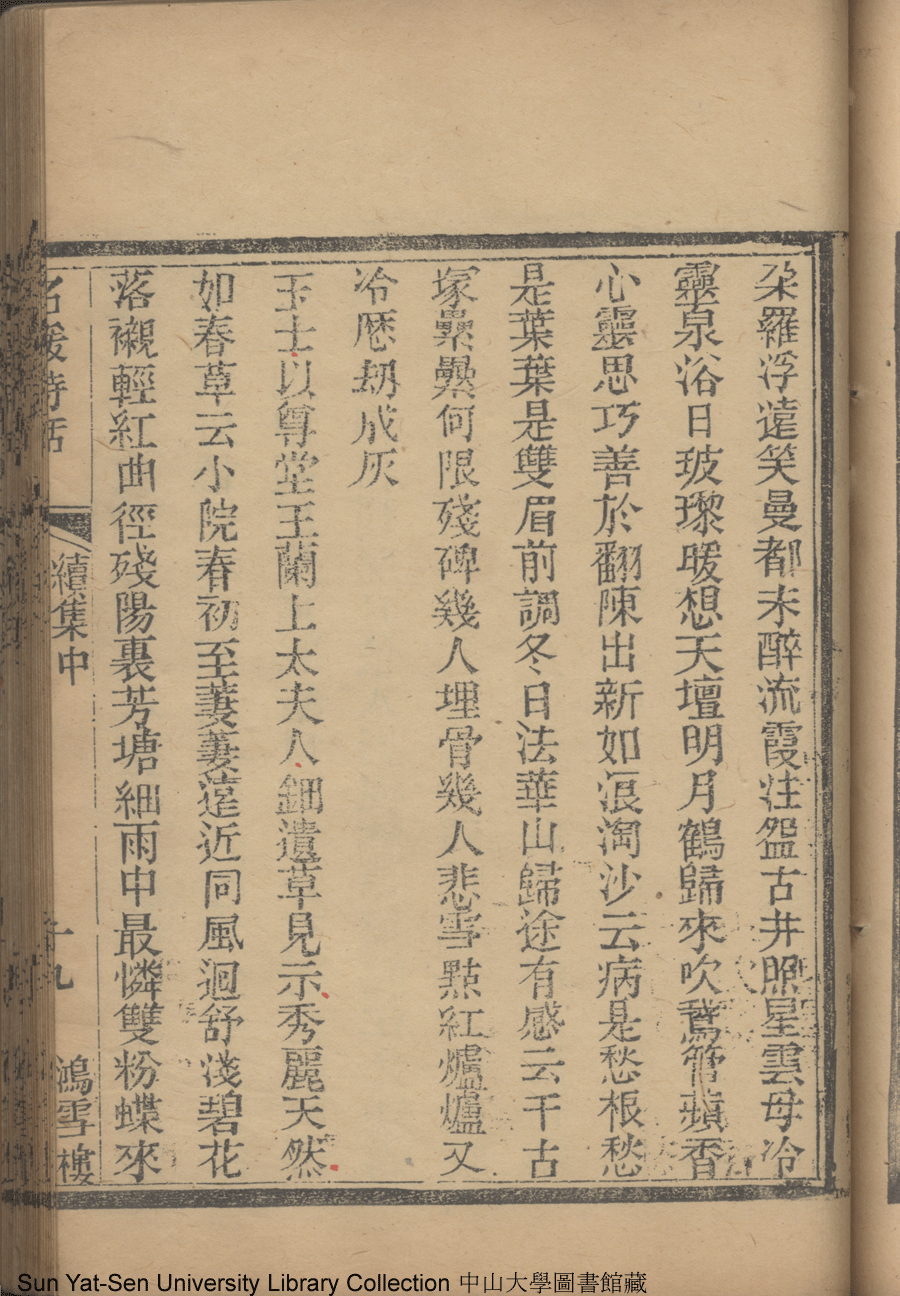 朶羅浮遠笑曼都未醉流霞注盌古井照星雲母冷
靈泉浴日玻瓈暖想天壇明月鶴歸來吹鵞管蘋香
心靈思巧善於翻陳出新如浪淘沙云病是愁根愁
是葉葉是雙眉前調冬日法華山歸途有感云千古
塚纍纍何限殘碑幾人埋骨幾人悲雪點紅爐爐又
冷歴劫成灰
玉士以尊堂王蘭上太夫人鈿遺草見示秀麗天然
如春草云小院春初至萋萋遠近同風迴舒淺碧花
落襯輕紅曲徑殘陽裏芳塘細雨中最憐雙粉蝶來
名媛詩話 續集中 十九 鴻雪樓
Sun Yat-Sen University Library Collection 中山大學圖書館藏